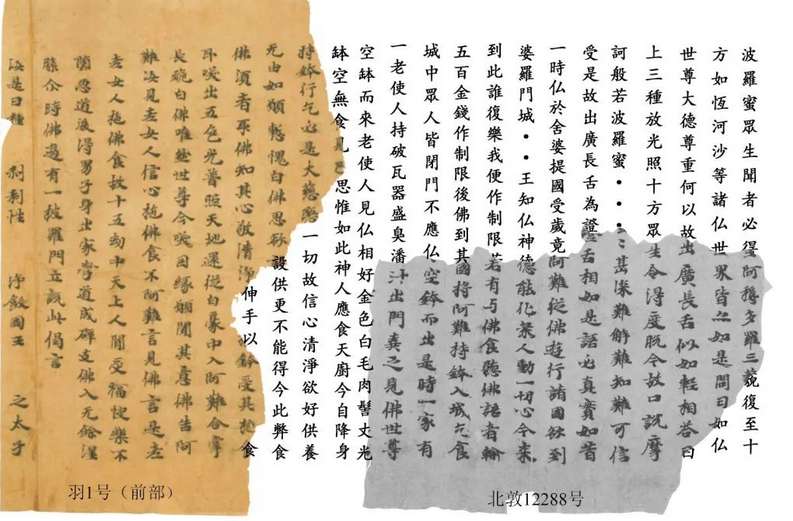 波羅蜜眾生聞者必得阿耨多羅三藐復至十
方如恆河沙等諸仏世界皆亦如是問曰如仏
世尊大德尊重何以故出廣長舌似如輕相答曰
上三種放光照十方眾生令得度脫今欲口說摩
訶般若波羅蜜・・・・甚深難解難知難可信
受是故出廣長舌為證舌相如是語必真實如昔
一時仏於舍婆提國受歲竟阿難從佛遊行諸國欲到
婆羅門城・・王知仏神德能化眾人動一切心今來
到此誰復樂我便作制限若有与佛食聽佛語者輸
五百金錢作制限後佛到其國將阿難持鉢入城乞食
城中眾人皆閉門不應仏空鉢而出是時一家有
一老使人持破瓦器盛臭潘汁出門棄之見佛世尊
空鉢而來老使人見仏相好金色白毛肉髻丈光
鉢空無食見已思惟如此神人應食天廚今自降身
持鉢行乞必是大慈愍一切故信心清淨欲好供養
无由如願慙愧白佛思欲設供更不能得今此弊食
佛須者取佛知其心敬清淨伸手以鉢受其施食
即咲出五色光普照天地還從白豪中入阿難合掌
長跪白佛唯然世尊今咲因緣願聞其意佛告阿
難汝見老女人信心施佛食不阿難言見佛言是老
老女人施佛食故十五劫中天上人間受福快樂不
墮惡道後得男子身出家學道成辟支佛入无餘涅
槃尒時佛邊有一婆羅門立說此偈言
汝是日種 剎利姓 淨飯國王 之太子
羽1号（前部）
北敦12288号